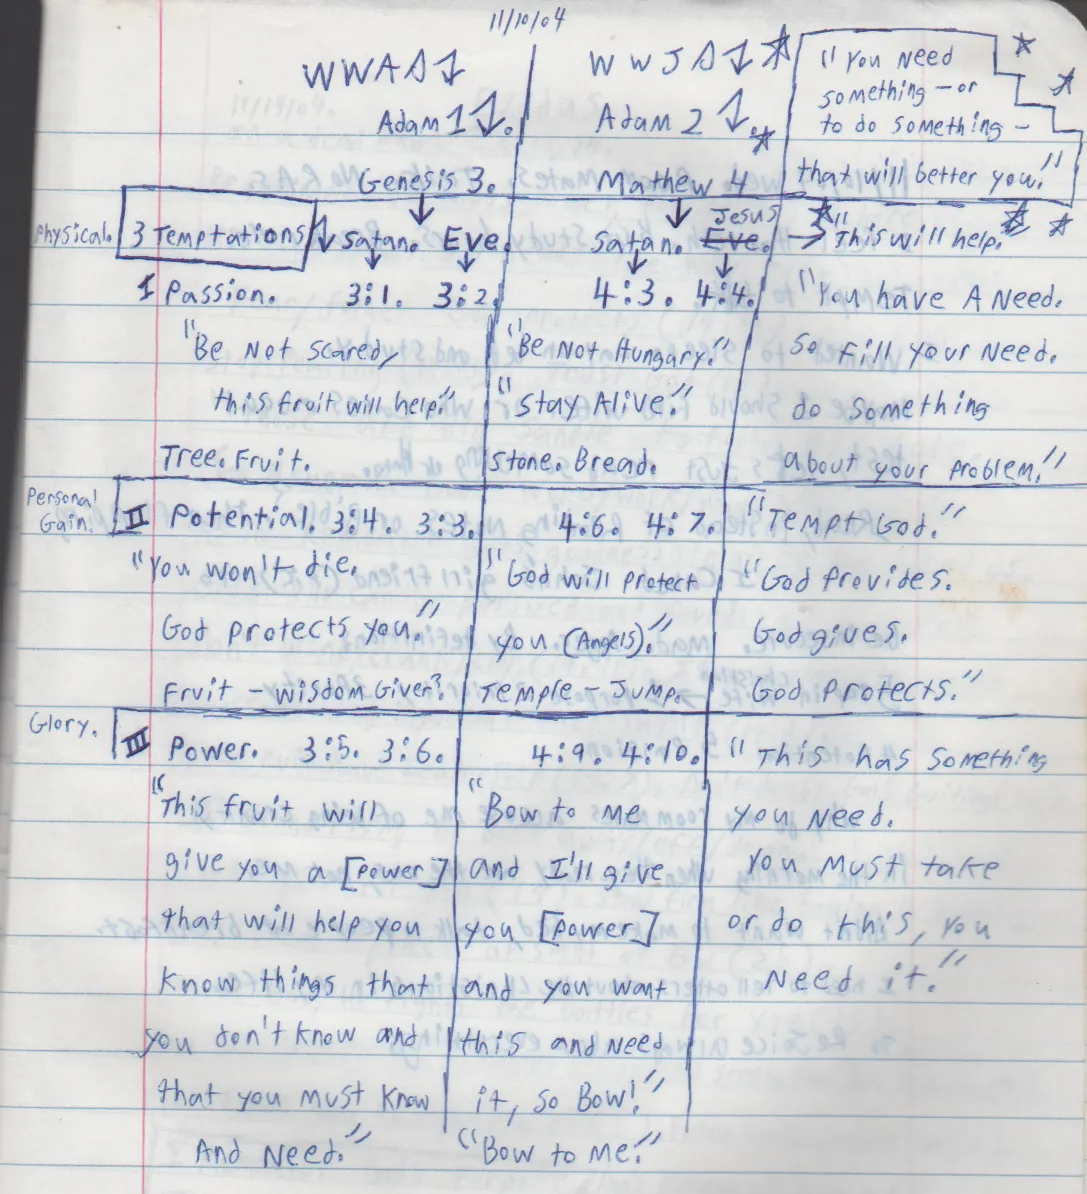 11/10/04
WWAD
WWJD
"You Need
something — or
to do something —
that will better you."
Adam 1
Adam 2
Genesis 3.
Mathew 4
Physical.
3 Temptations
Satan. Eve.
Satan. Eve. Jesus
"This will help."
I Passion. 3:1. 3:2.
4:3. 4:4.
"You have A Need.
"Be Not Scared,
"Be Not Hungary."
So Fill your Need.
this fruit will help."
"Stay Alive."
do something
Tree. Fruit.
Stone. Bread.
about your problem."
Personal
Gain.
II Potential. 3:4. 3:3.
4:6. 4:7.
"Tempt God."
"You won't die.
"God will protect
"God provides.
God protects you."
you (Angels)."
God gives.
Fruit — wisdom Giver?
Temple — Jump.
God protects."
Glory.
III Power. 3:5. 3:6.
4:9. 4:10.
"This has something
"This fruit will
"Bow to me
you need.
give you a [power]
and I'll give
You must take
that will help you
you [power]
or do this, you
know things that
and you want
Need it."
you don't know and
this and need
that you must know
it, so Bow!"
And Need."
"Bow to me."